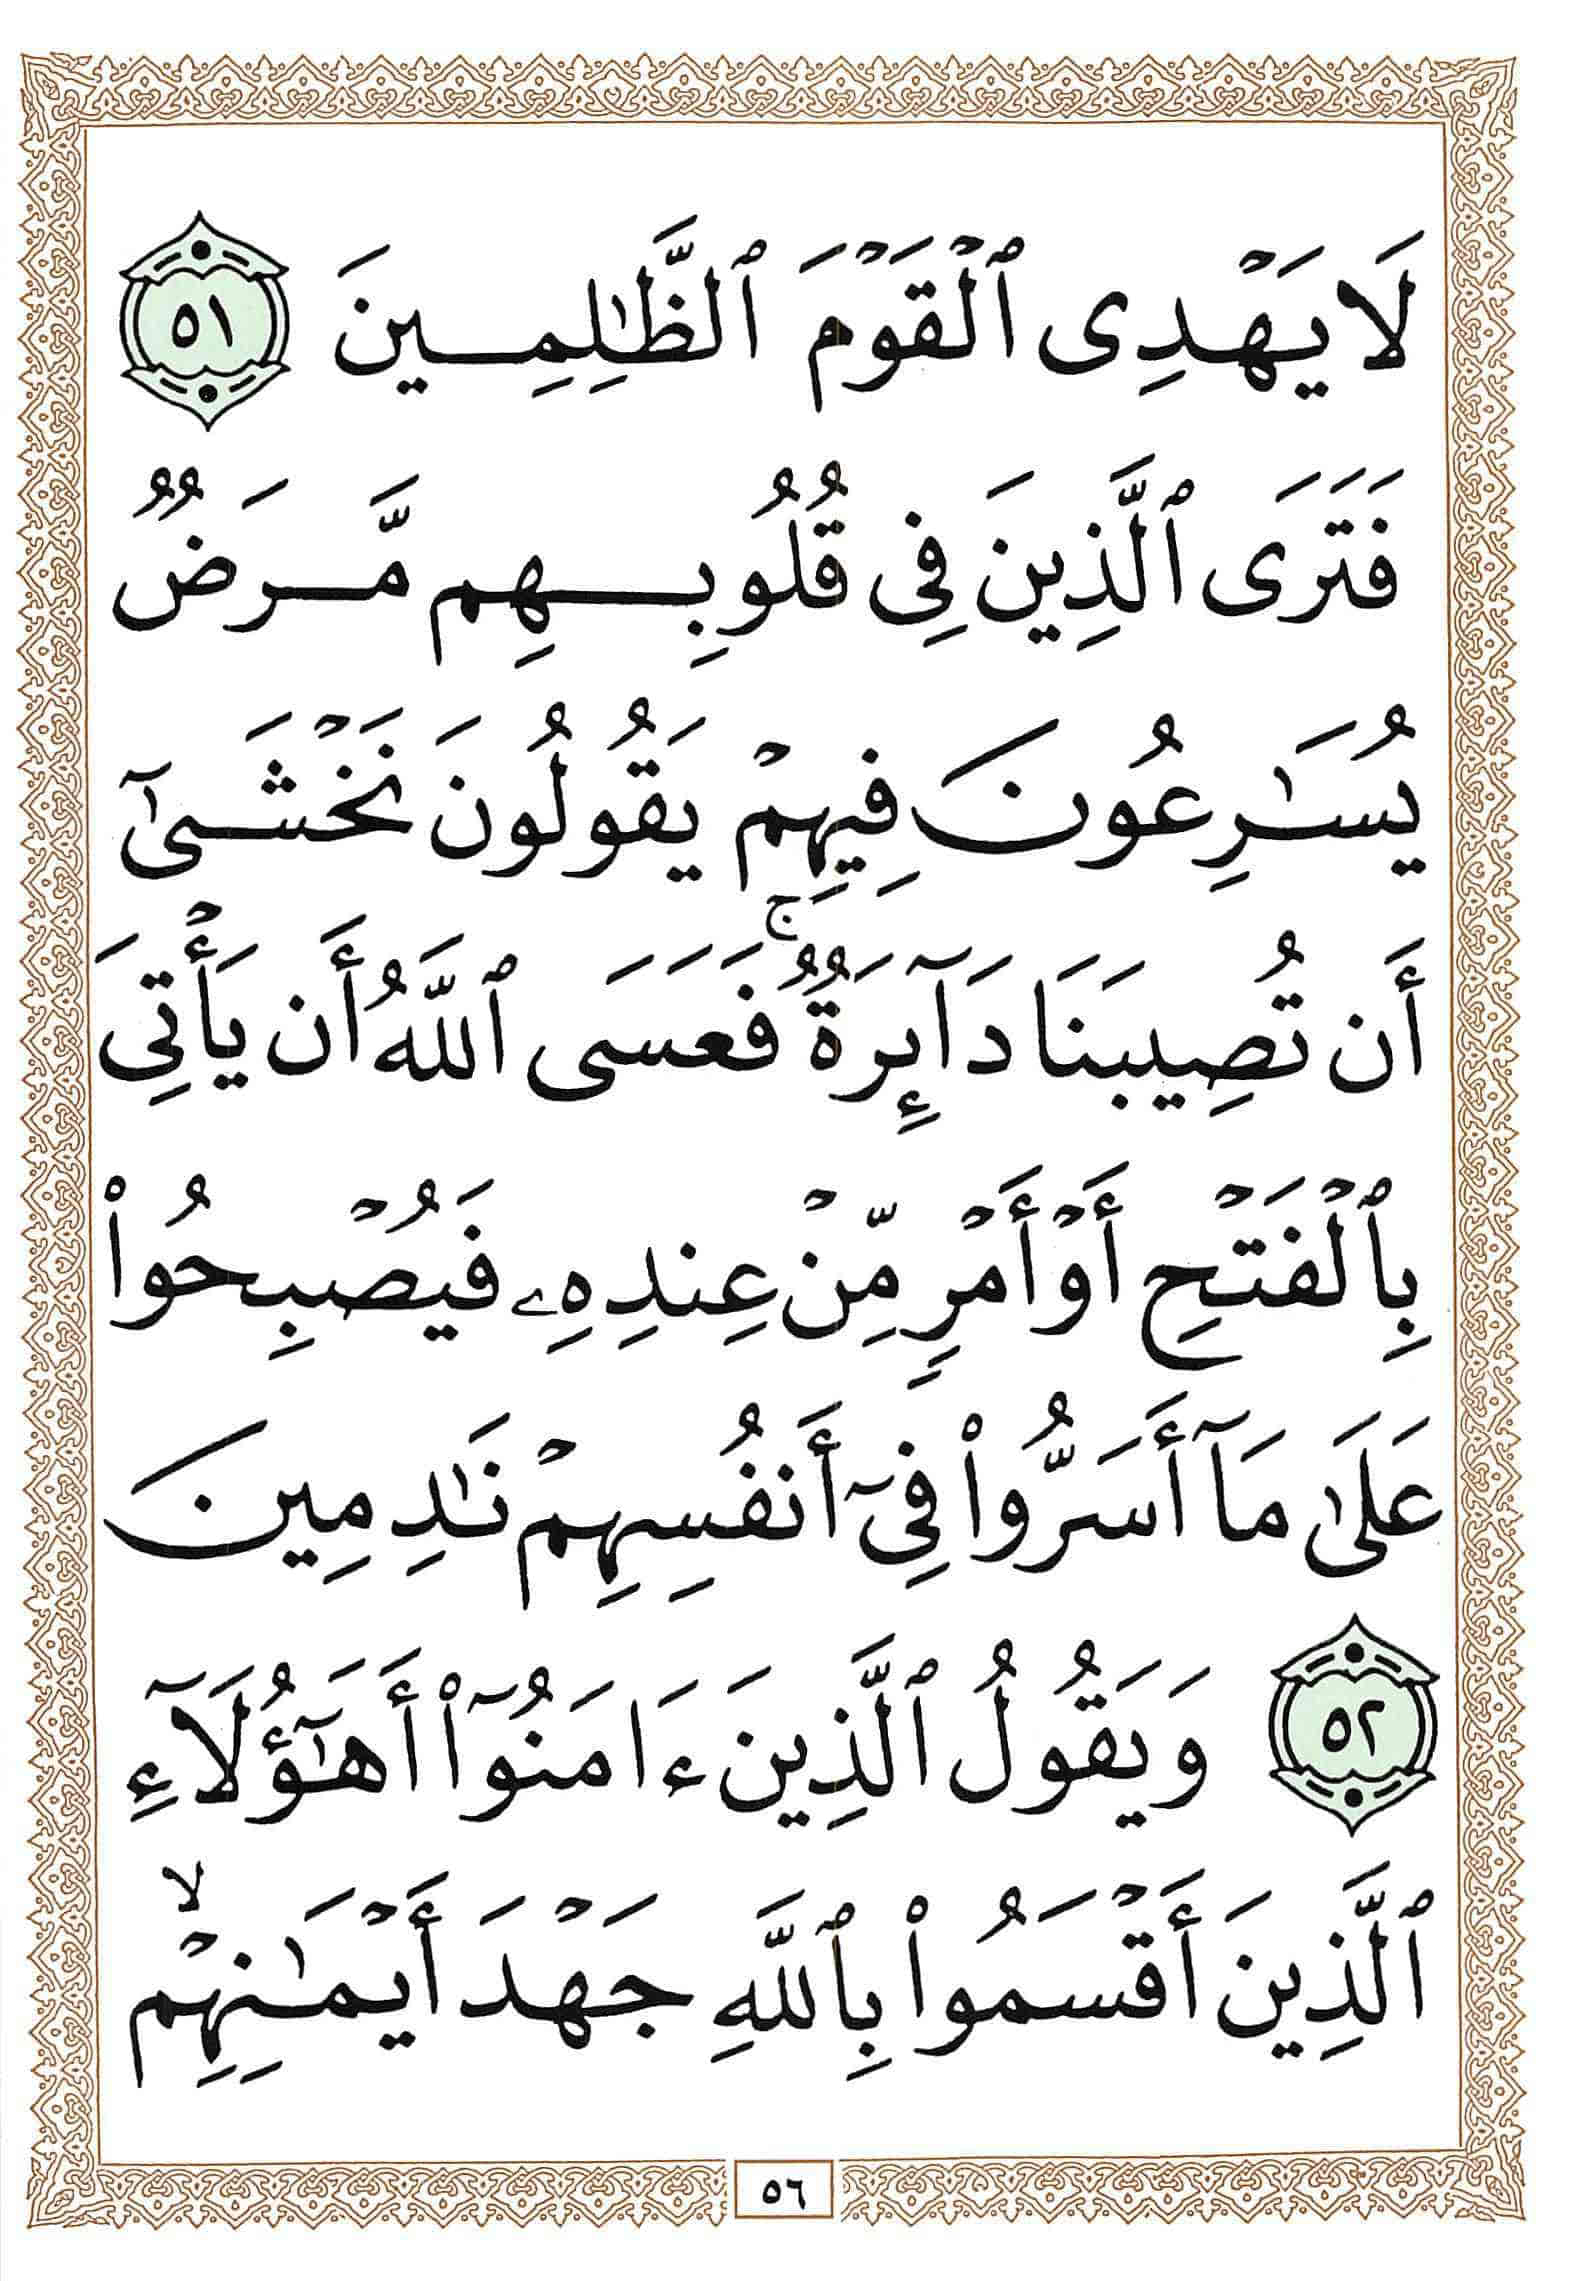 لَا يَهْدِى ٱلْقَوْمَ ٱلظَّٰلِمِينَ ٥١
فَتَرَى ٱلَّذِينَ فِى قُلُوبِهِم مَّرَضٌ
يُسَٰرِعُونَ فِيهِمْ يَقُولُونَ نَخْشَىٰٓ
أَن تُصِيبَنَا دَآئِرَةٌ ۚ فَعَسَى ٱللَّهُ أَن يَأْتِىَ
بِٱلْفَتْحِ أَوْ أَمْرٍ مِّنْ عِندِهِۦ فَيُصْبِحُوا۟
عَلَىٰ مَآ أَسَرُّوا۟ فِىٓ أَنفُسِهِمْ نَٰدِمِينَ
٥٢ وَيَقُولُ ٱلَّذِينَ ءَامَنُوٓا۟ أَهَٰٓؤُلَآءِ
ٱلَّذِينَ أَقْسَمُوا۟ بِٱللَّهِ جَهْدَ أَيْمَٰنِهِمْ ۙ
٥٦